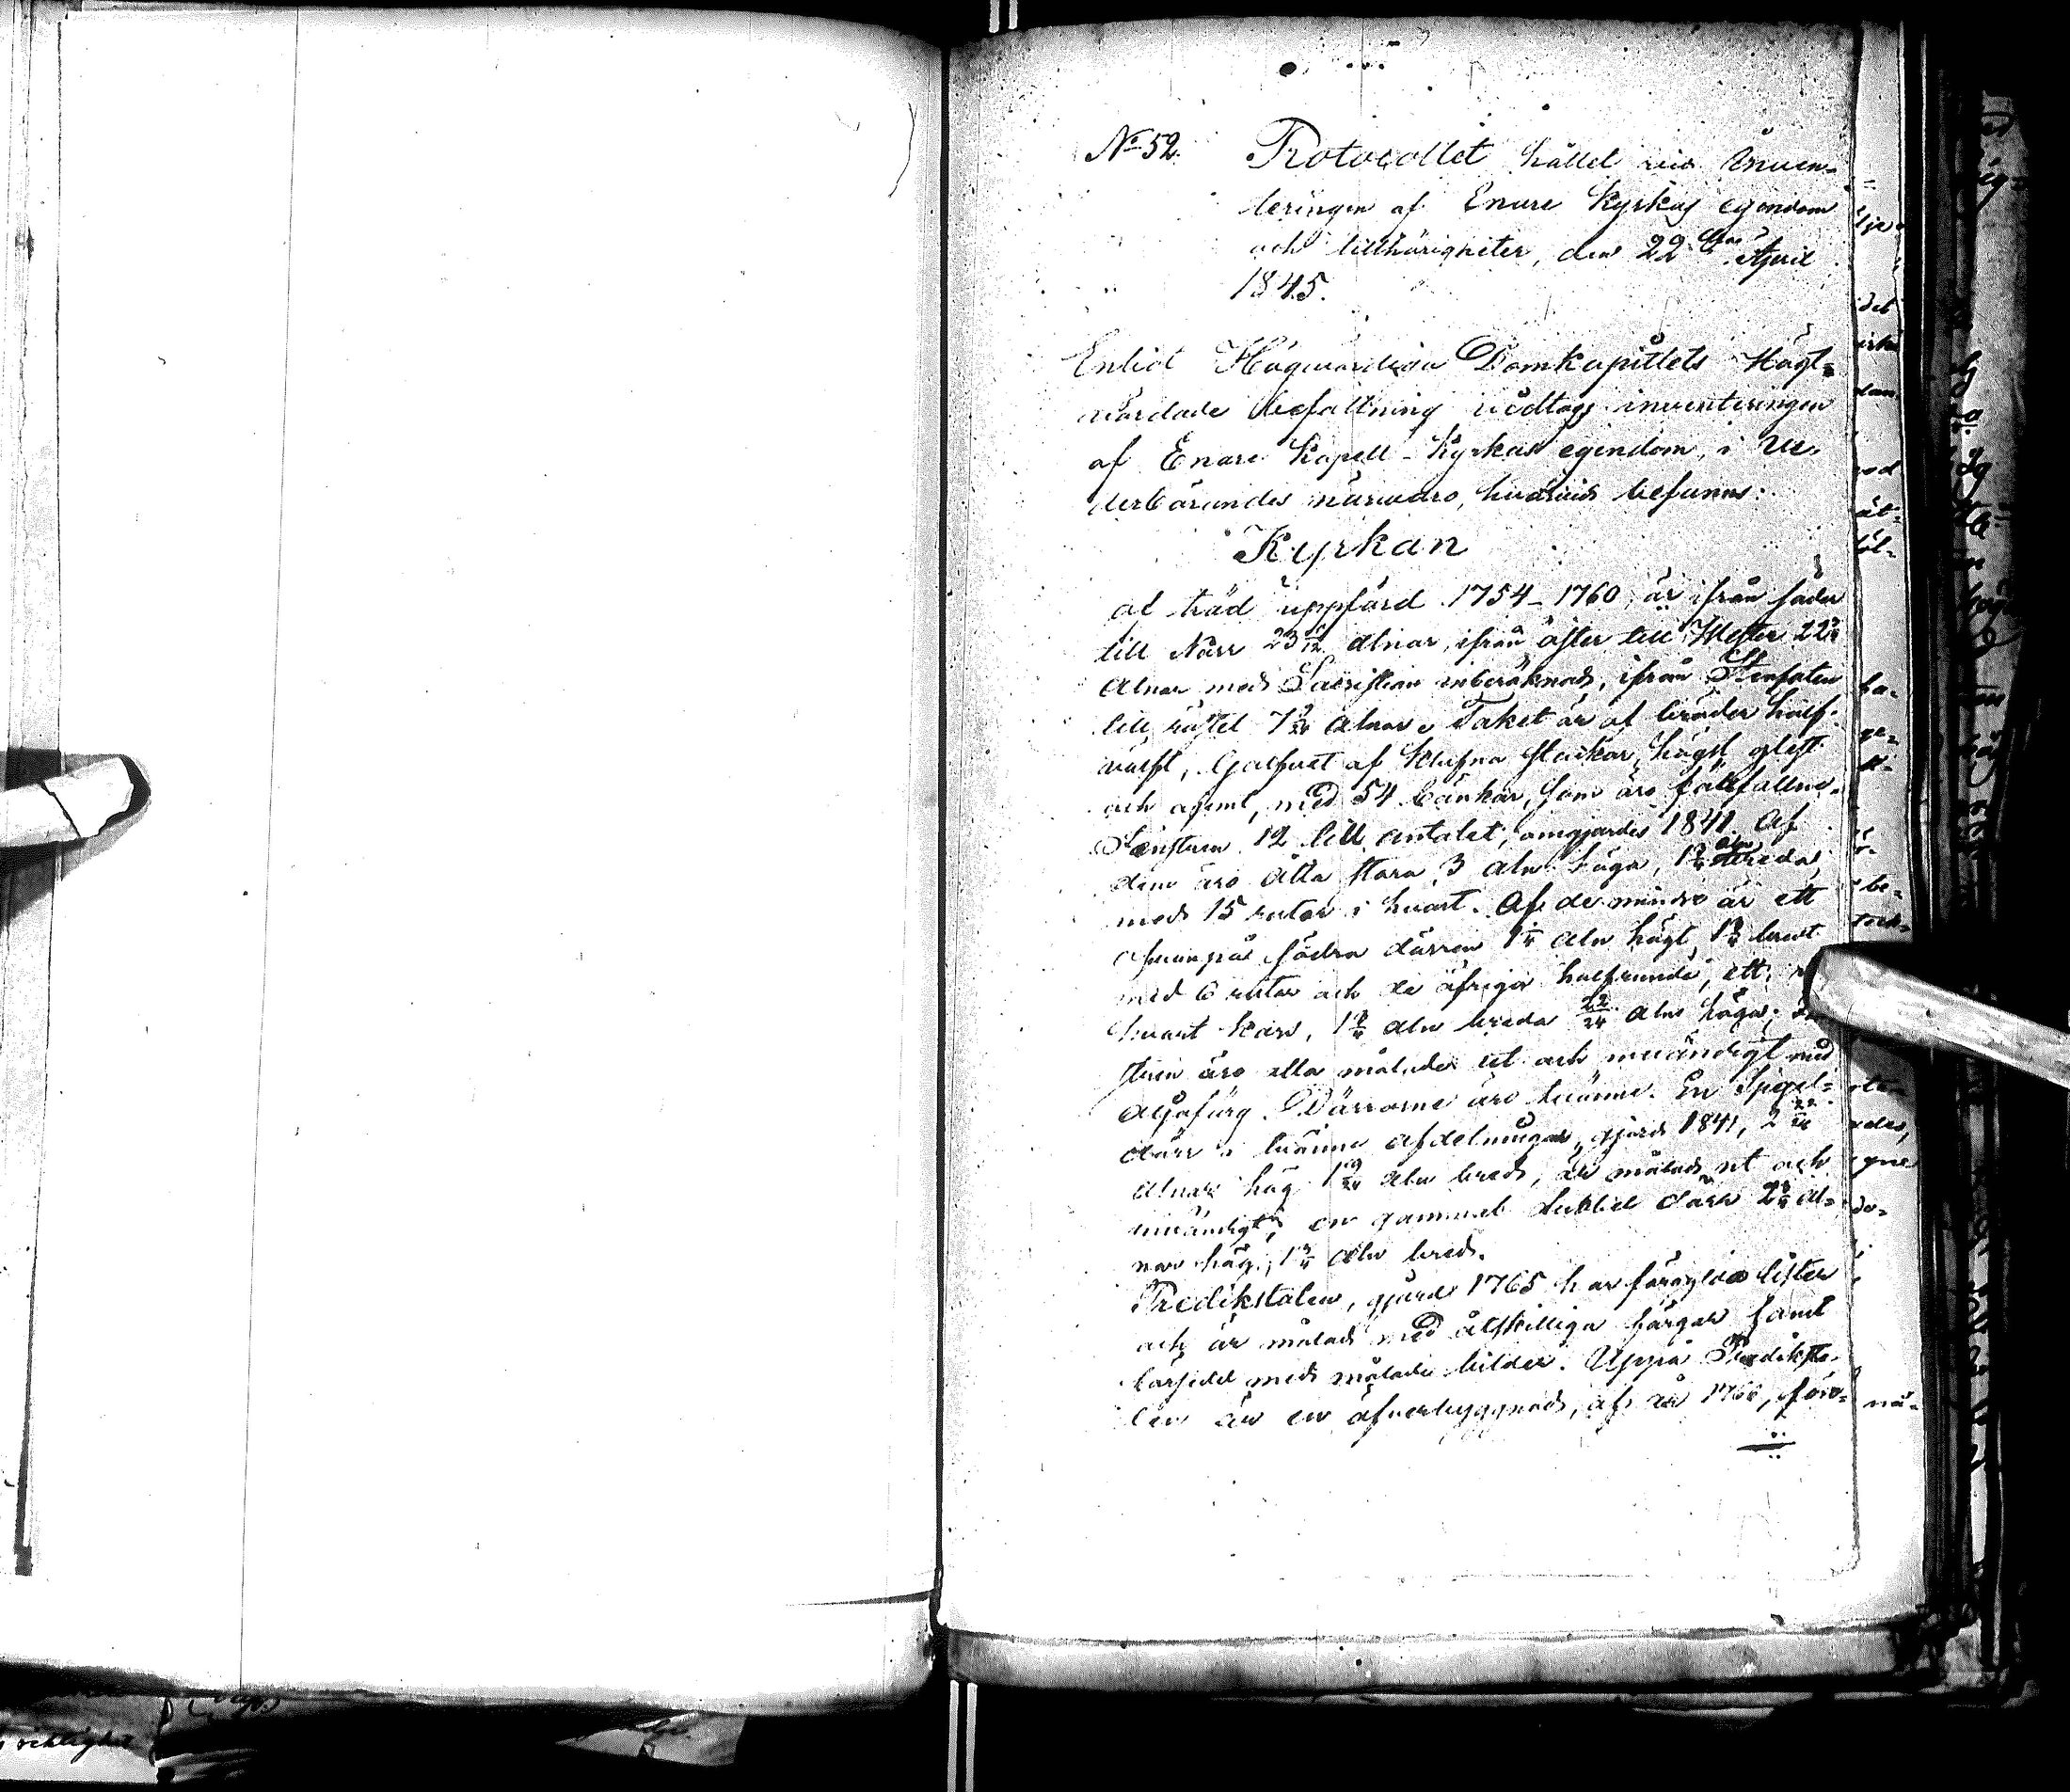 No 52. Protocollet hållet vid Inven-
teringen af Enare Kyrkas egendom
och tillhörigheter, den 22dra April
1845.
Enligt Högvördiga Domkapitlets Högt-
vördade befallning vidtogs inventeringen
af Enare Kapell-Kyrkas egendom, i Ve-
derbörandes närvaro, hvarvid befanns:
Kyrkan
af träd uppförd 1754-1760, är ifrån söder
till Norr 23 alnar, ifrån öster till Wester 22
alnar med Sacristian inberäknad, ifrån Stenfoten
till röstet 7 alnar. Taket är af bräder half-
välft, Golfvet af klufna stockar, högst glest
och ojemt, med 54 bänkar, som äro fallfallne.
Fenstren 12 till antalet, omgjordes 1841. Af
dem äro åtta stora 3 aln höga, 1 aln breda,
med 15 rutor i hvart. Af de mindre är ett
ofvanpå södra dörren 1 aln högt, 1 bredt
med 6 rutor och de öfriga halfrunda, ett i
hvart kors, 1 aln breda 22/24 aln höga; Fen-
stren äro alla målade ut och invändigt med
oljofärg. Dörrarne äro tvänne. En Spegel-
dörr i tvänne afdelningar, gjord 1841, 2 22/24
alnar hög 1 aln bred, är målad ut och
invändigt; en gammal dubbel dörr 2 al-
nar hög, 1 aln bred.
Predikstolen, gjord 1765 har förgyllda lister
och är målad med åtskilliga färger samt
försedd med målade bilder. Uppå Prediksto-
len är en öfverbyggnad, af år 1766, förs-